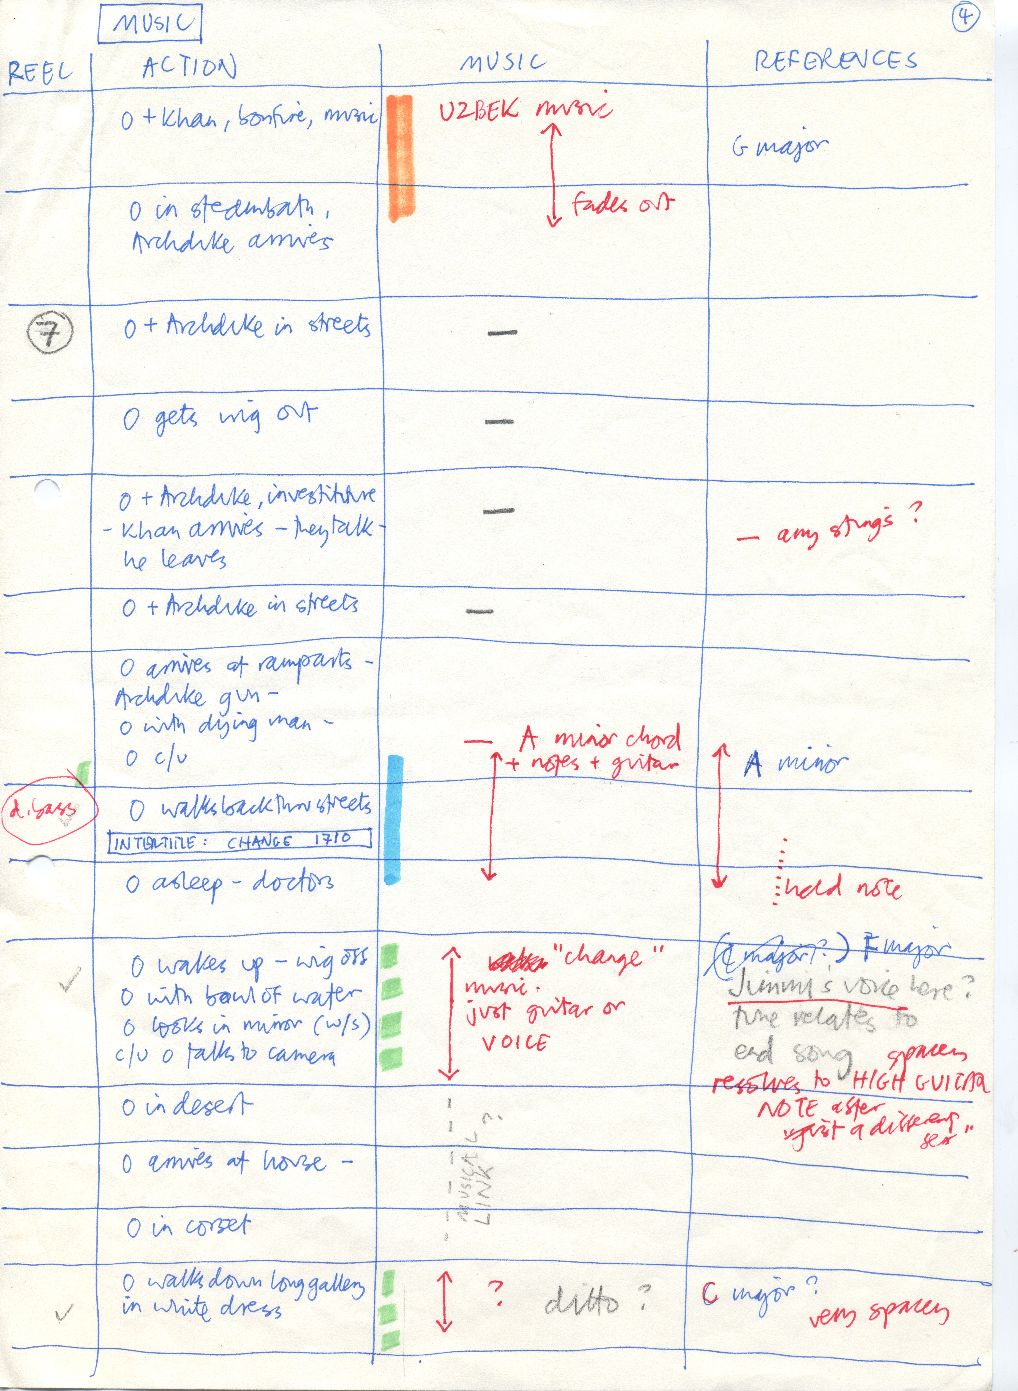 MUSIC
4
REEL ACTION MUSIC REFERENCES
O + Khan, bonfire, music
UZBEK music
G major
O in steambath,
Archdike arrives
fades out
7
O + Archdike in streets
—
O gets wig out
—
O + Archdike, investiture
- Khan arrives - they talk -
he leaves
—
— any strings ?
O + Archdike in streets
—
O arrives at ramparts -
Archdike gun -
O with dying man -
O c/u
— A minor chord
+ notes + guitar
A minor
d. bass
O walks back thru streets
INTERTITLE: CHANGE 1710
O asleep - doctors
held note
O wakes up - wig off
O with bowl of water
O looks in mirror (w/s)
c/u O talks to camera
"change"
music.
just guitar or
VOICE
(C major?) F major
Jimmy's voice here?
tune relates to
end song
spacey
resolves to HIGH GUITAR
NOTE after
"just a different
sex"
O in desert
O arrives at house -
O in corset
MUSICAL
LINK ?
O walks down long gallery
in white dress
? ditto ?
C major ?
very spacey